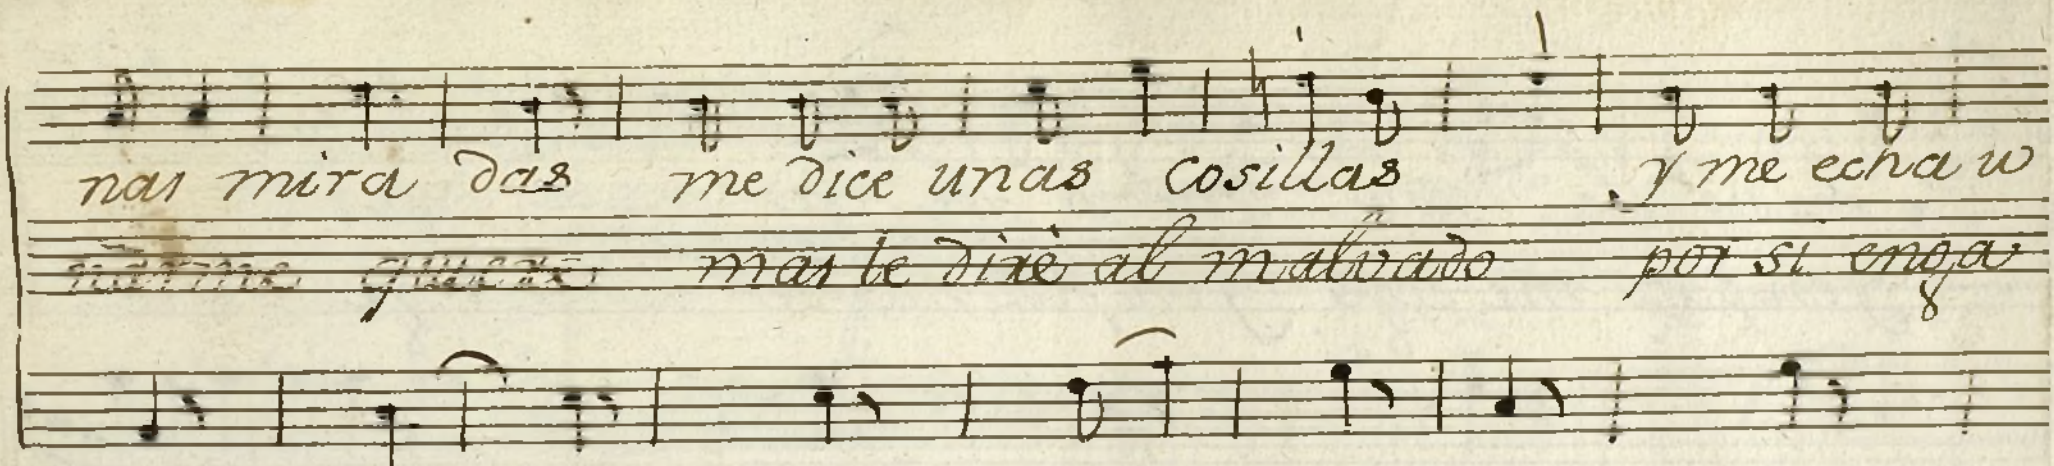 nas mira das me dice unas cosillas y me echa u
narme quiere mas le dirè al malvado por si enga